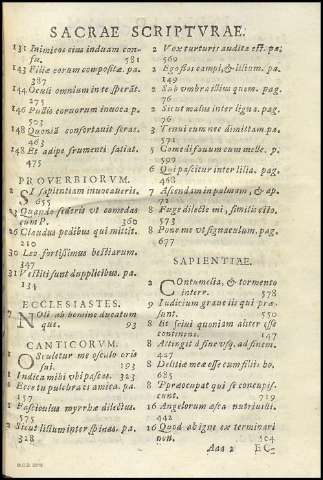 SACRAE SCRIPTVRAE.
131 Inimicos eius induam confu. 581
143 Filiæ eorum compositæ. pa.
387
144 Oculi omnium in te sperãt.
275
146 Pullis coruorum inuoca p.
503
148 Quoniã confortauit seras.
463
148 Et adipe frumenti satiat.
475
PROVERBIORVM.
2 SI sapientiam inuocaueris.
655
23 Quando sederis vt comedas
cum P. 360
26 Claudus pedibus qui mittit.
210
30 Leo fortissimus bestiarum.
147
31 Vestiti sunt dupplicibus. pa.
134
ECCLESIASTES.
7 NOli ab homine ducatum
que. 93
CANTICORVM.
1 OSculetur me osculo oris
sui. 193
1 Indica mihi vbi pascas. 323
1 Ecce tu pulchra es amica. pa.
157
1 Fasciculus myrrhæ dilectus.
575
2 Sicut lilium inter spinas. pa.
328
2 Vox turturis audita est. pa.
560
2 Ego flos campi, & lilium. pa.
149
2 Sub vmbra illius quem. pag.
76
2 Sicut malus inter ligna. pag.
76
3 Tenui eum nec dimittam pa.
571
5 Comedi fauum cum melle. p.
590
6 Qui pascitur inter lilia. pag.
468
7 Ascendam in palmam, & ap.
71
8 Fuge dilecte mi, similis esto.
573
8 Pone me vt signaculum. pag.
677
SAPIENTIAE.
2 COntumelia, & tormento
interr. 578
9 Iudicium graue iis qui præsunt. 550
8 Et sciui quoniam aliter esse
continens. 147
8 Attingit à fine vsq. ad finem.
427
8 Delitiæ meæ esse cum filiis ho.
685
8 Præoccupat qui se concupiscunt. 719
16 Angelorum æsca nutriuisti.
442
16 Quod ab igne exterminari
non. 104
Aaa 2 EC-